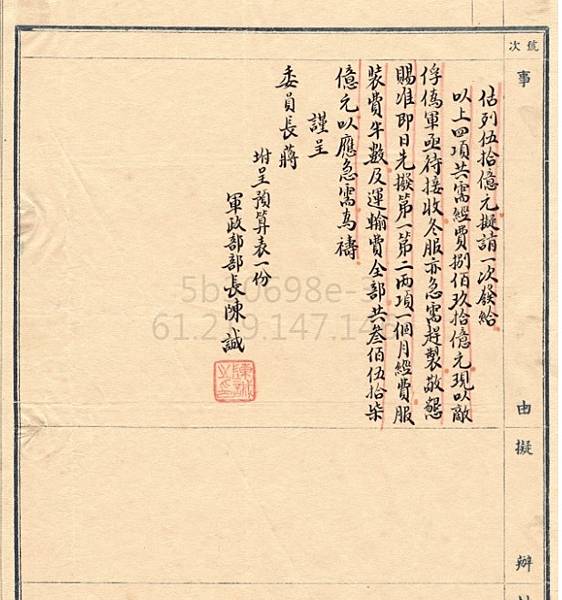 號次
事
由
擬
辦
估列伍拾億元擬請一次發給
以上四項共需經費捌佰玖拾億元現以敵
俘偽軍亟待接收冬服亦急需趕製敬懇
賜准即日先撥第一第二兩項一個月經費服
裝費半數及運輸費全部共叁佰伍拾柒
億元以應急需為禱
謹呈
委員長蔣
坿呈預算表一份
軍政部部長陳誠